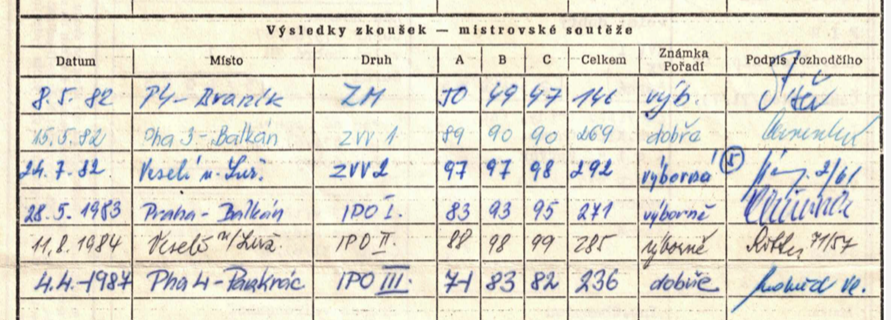 Výsledky zkoušek — mistrovské soutěže
Datum Místo Druh A B C Celkem Známka Pořadí Podpis rozhodčího
8.5.82 P4-Braník ZM 50 49 47 146 výb.
15.5.82 Pha 3-Balkán ZVV 1 89 90 90 269 dobře
24.7.82. Veselí n. Luž. ZVV2 97 97 98 292 výborná 5 2/61
28.5.1983 Praha-Balkán IPO I. 83 93 95 271 výborně
11.8.1984 Veselí n/Luž. IPO II. 88 98 99 285 výborně 71/57
4.4.-1987 Pha 4-Pankrác IPO III. 71 83 82 236 dobře